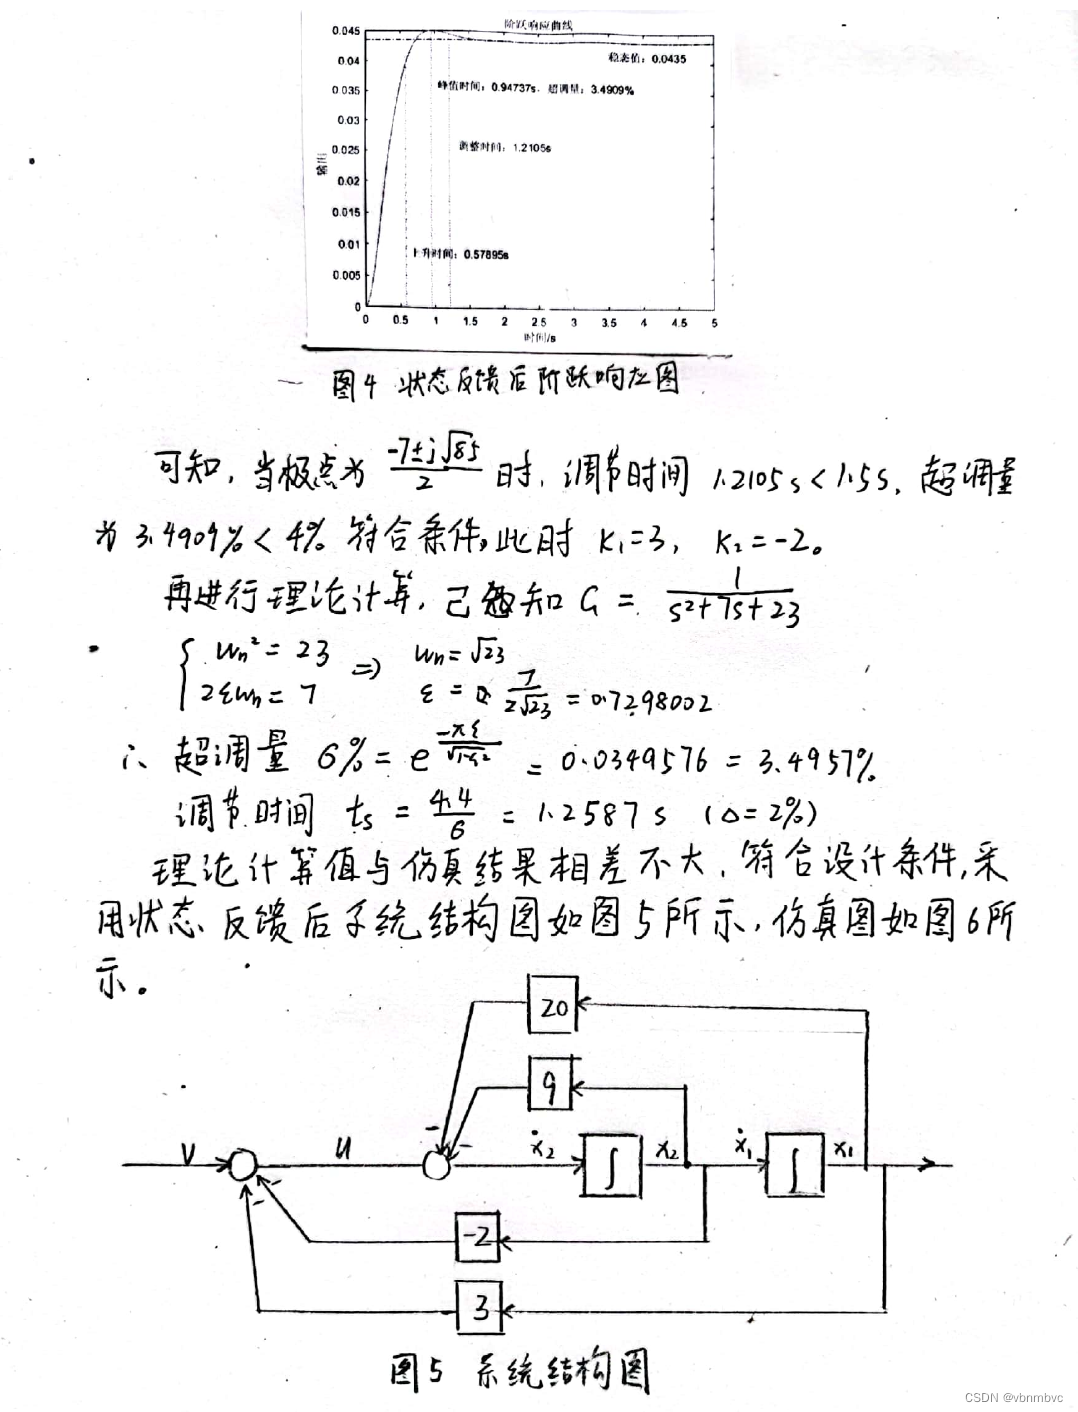 阶跃响应曲线
0.045
0.04
0.035
0.03
0.025
0.02
0.015
0.01
0.005
0
稳态值：0.0435
峰值时间：0.94737s. 超调量：3.4909%
调整时间：1.2105s
上升时间：0.57895s
输出
0 0.5 1 1.5 2 2.5 3 3.5 4 4.5 5
时间/s
图4 状态反馈后阶跃响应图
可知，当极点为 (-7±j√85)/2 时，调节时间 1.2105s<1.5s，超调量
为 3.4909%<4% 符合条件，此时 K₁=3， K₂=-2。
再进行理论计算，已知 G = 1/(s²+7s+23)
{ Wn²=23 => Wn=√23
2ξWn=7 ξ = 7/(2√23) =0.7298002
∴ 超调量 б%=e^(-πξ/√(1-ξ²)) = 0.0349576 = 3.4957%
调节时间 ts = 4.4/б = 1.2587s (Δ=2%)
理论计算值与仿真结果相差不大，符合设计条件，采
用状态反馈后系统结构图如图5所示，仿真图如图6所
示。
20
9
V u ẋ₂ ∫ x₂ ẋ₁ ∫ x₁
- - - -
-2
3
图5 系统结构图
CSDN @vbnmbvc